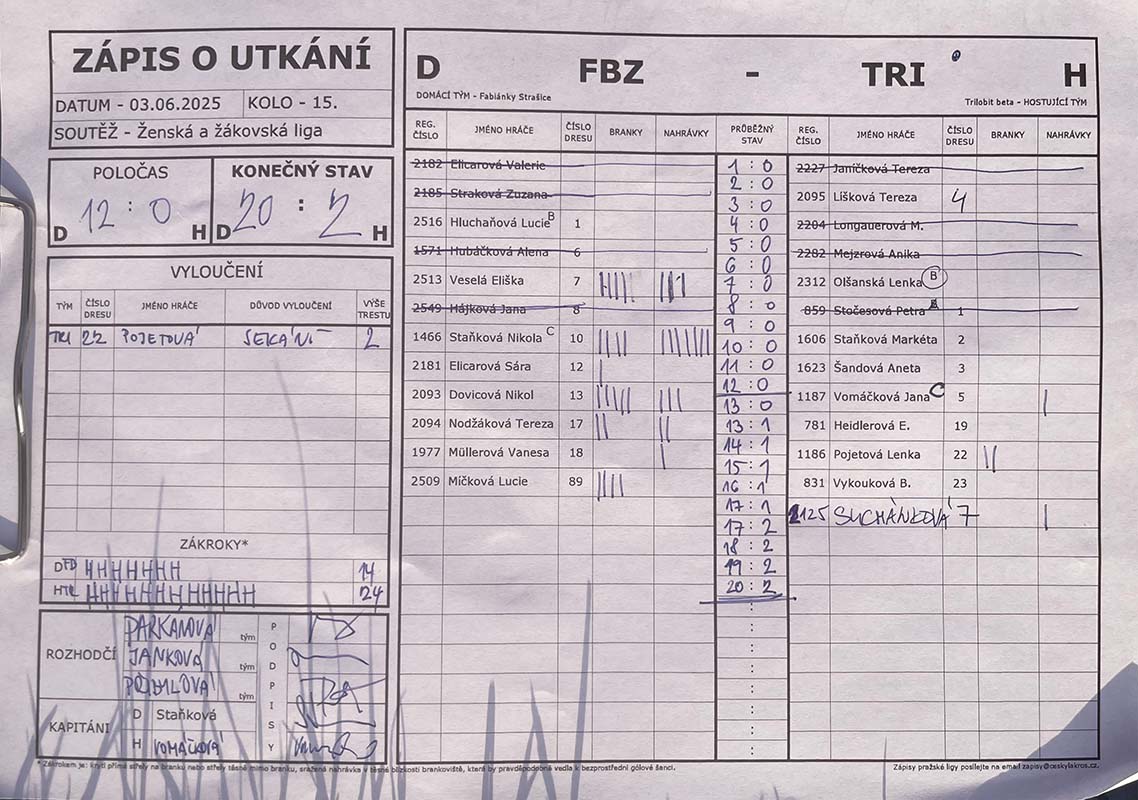 ZÁPIS O UTKÁNÍ
DATUM - 03.06.2025 KOLO - 15.
SOUTĚŽ - Ženská a žákovská liga
POLOČAS KONEČNÝ STAV
D 12 : 0 H D 20 : 2 H
VYLOUČENÍ
TÝM ČÍSLO DRESU JMÉNO HRÁČE DŮVOD VYLOUČENÍ VÝŠE TRESTU
TRI 22 POJETOVÁ SEKÁNÍ 2
ZÁKROKY*
D 14
H 24
ROZHODČÍ
PARKANOVÁ tým
JANKOVÁ tým
tým
PODPISY
KAPITÁNI
D Staňková
H VOMÁČKOVÁ
D FBZ - TRI H
DOMÁCÍ TÝM - Fabiánky Strašice Trilobit beta - HOSTUJÍCÍ TÝM
REG. ČÍSLO JMÉNO HRÁČE ČÍSLO DRESU BRANKY NAHRÁVKY PRŮBĚŽNÝ STAV REG. ČÍSLO JMÉNO HRÁČE ČÍSLO DRESU BRANKY NAHRÁVKY
2182 Elicarová Valerie
2185 Straková Zuzana
2516 Hluchaňová Lucie B 1
1571 Hubáčková Alena 6
2513 Veselá Eliška 7 ||||| ||||
2549 Hájková Jana 8
1466 Staňková Nikola C 10 |||| |||||||
2181 Elicarová Sára 12 |
2093 Dovicová Nikol 13 ||||| |||
2094 Nodžáková Tereza 17 || ||
1977 Müllerová Vanesa 18 |
2509 Míčková Lucie 89 ||||
1 : 0
2 : 0
3 : 0
4 : 0
5 : 0
6 : 0
7 : 0
8 : 0
9 : 0
10 : 0
11 : 0
12 : 0
13 : 0
13 : 1
14 : 1
15 : 1
16 : 1
17 : 1
17 : 2
18 : 2
19 : 2
20 : 2
2227 Janíčková Tereza
2095 Lišková Tereza 4
2204 Longauerová M.
2282 Mejzrová Anika
2312 Olšanská Lenka B
859 Stočesová Petra B 1
1606 Staňková Markéta 2
1623 Šandová Aneta 3
1187 Vomáčková Jana C 5 |
781 Heidlerová E. 19
1186 Pojetová Lenka 22 ||
831 Vykouková B. 23
2125 SUCHÁNKOVÁ 7 |
* Zákrokem je: krytí přímé střely na branku nebo střely těsně mimo branku, sražená nahrávka v těsné blízkosti brankoviště, která by pravděpodobně vedla k bezprostřední gólové šanci.
Zápisy pražské ligy posílejte na email zapisy@ceskylakros.cz.